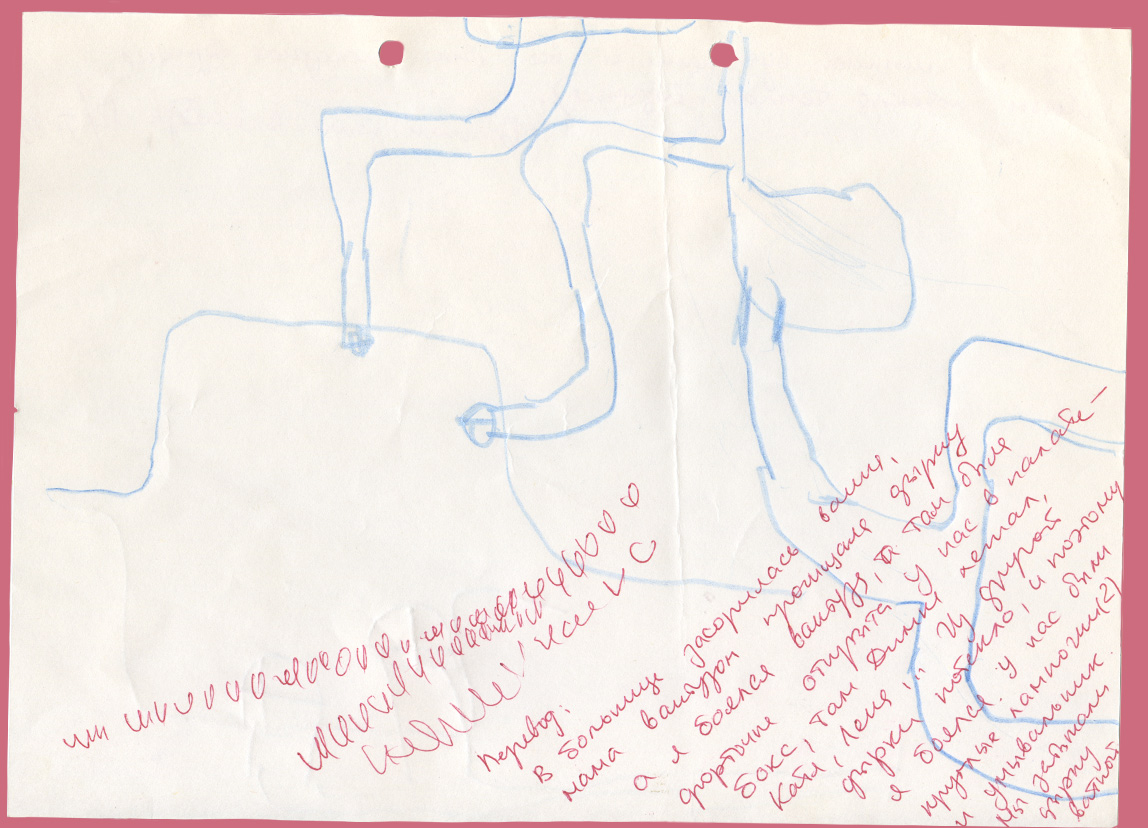 Перевод:
В больнице засорилась ванна,
мама вантузом прочищала дырку
а я боялся вантуза, а там была
форточка открыта у нас в палате –
бокс, там Дима летал,
Катя, Леня!!! Из другой
дырки потекло, и поэтому
я боялся. У нас были
круглые лампочки (2)
и умывальник.
Мы затыкали
дырку
ватной